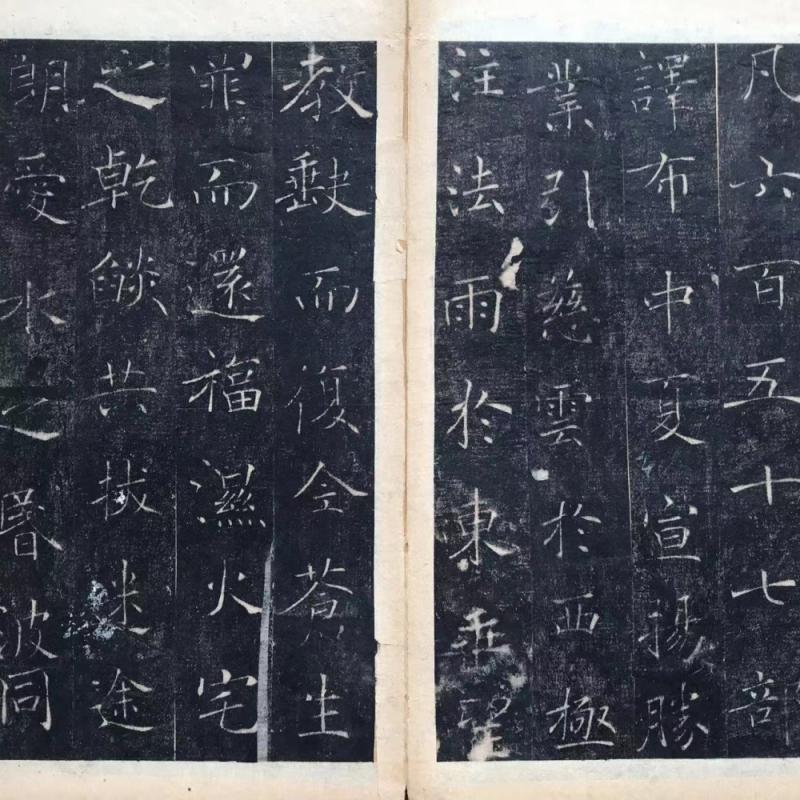 凡六百五十七部
譯布中夏宣揚勝
業引慈雲於西極
注法雨於東垂聖
教缺而復全蒼生
罪而還福濕火宅
之乾燄共拔迷途
朗愛水之昬波同